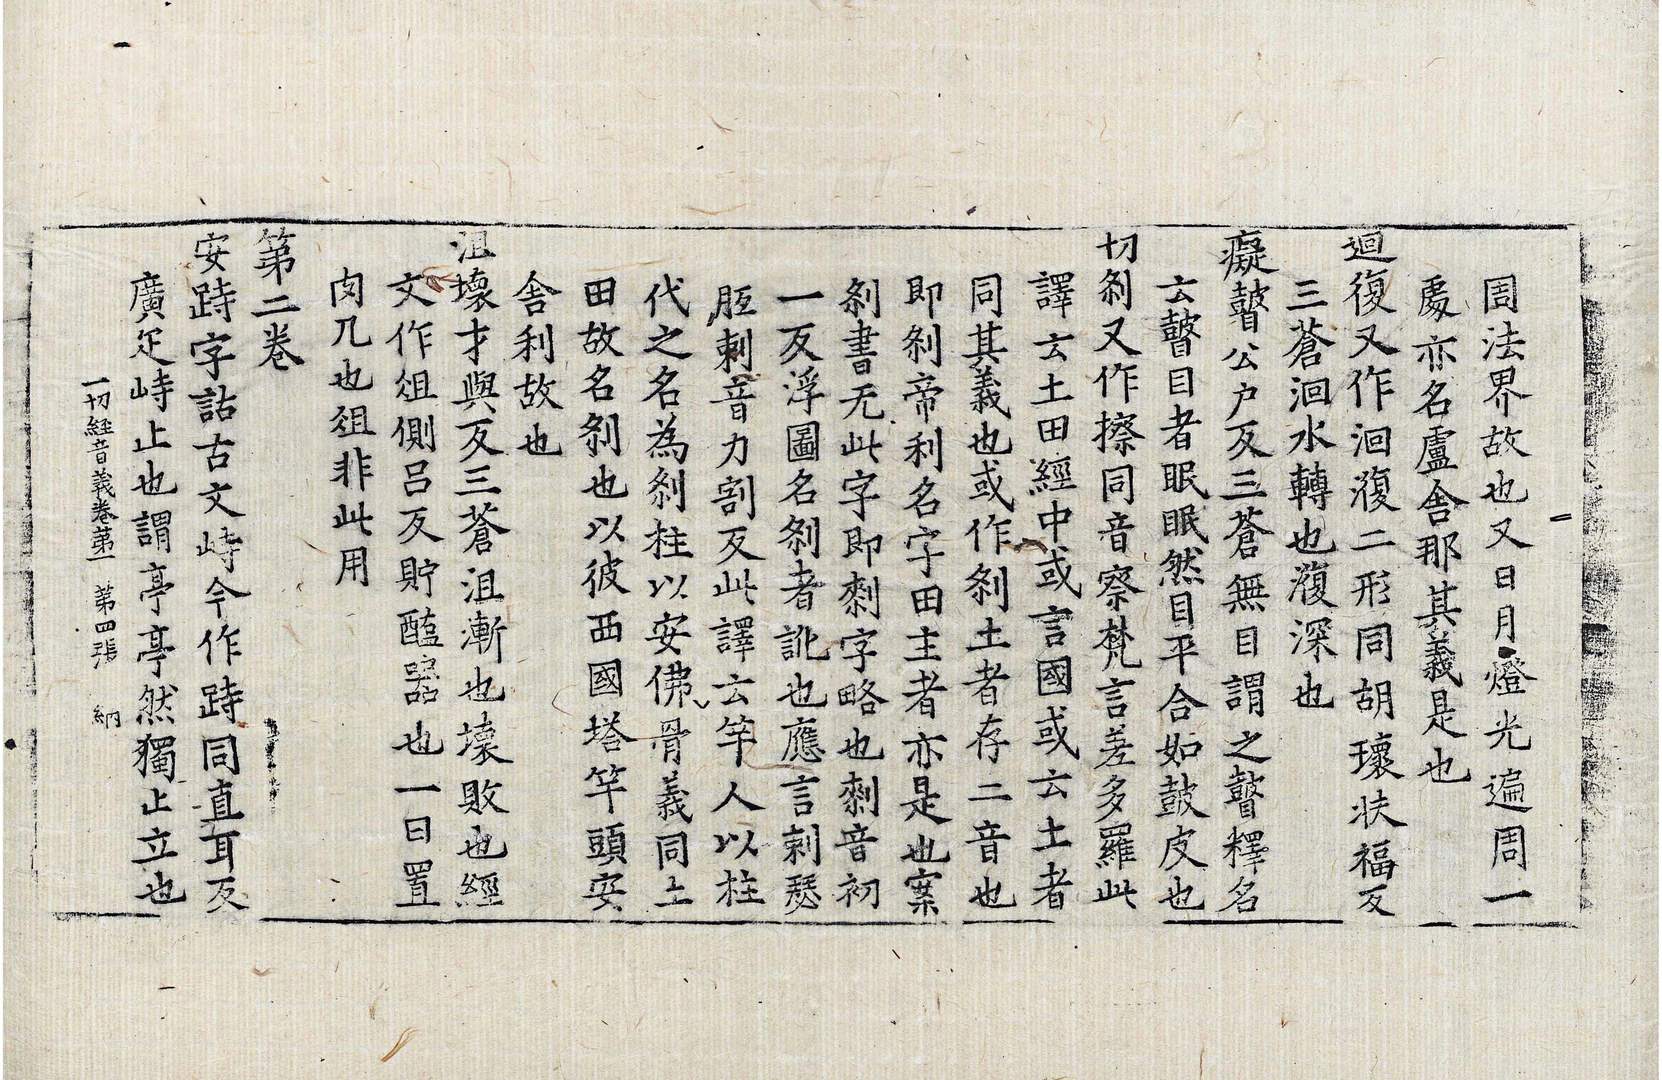 周法界故也又日月燈光遍周一
處亦名盧舍那其義是也
迴復又作洄澓二形同胡瓌扶福反
三蒼洄水轉也澓深也
癡瞽公户反三蒼無目謂之瞽釋名
云瞽目者眠眠然目平合如皷皮也
切刹又作擦同音察梵言差多羅此
譯云土田經中或言國或云土者
同其義也或作刹土者存二音也
即刹帝利名字田主者亦是也案
刹書无此字即剺字略也剺音初
一反浮圖名刹者訛也應言剌瑟
胵剌音力割反此譯云竿人以柱
代之名為刹柱以安佛骨義同土
田故名刹也以彼西國塔竿頭安
舍利故也
沮壞才與反三蒼沮漸也壞敗也經
文作俎側呂反貯醢器也一曰置
肉几也俎非此用
第二卷
安跱字詁古文峙今作跱同直耳反
廣疋峙止也謂亭亭然獨止立也
一切経音義卷第一 第四張 納